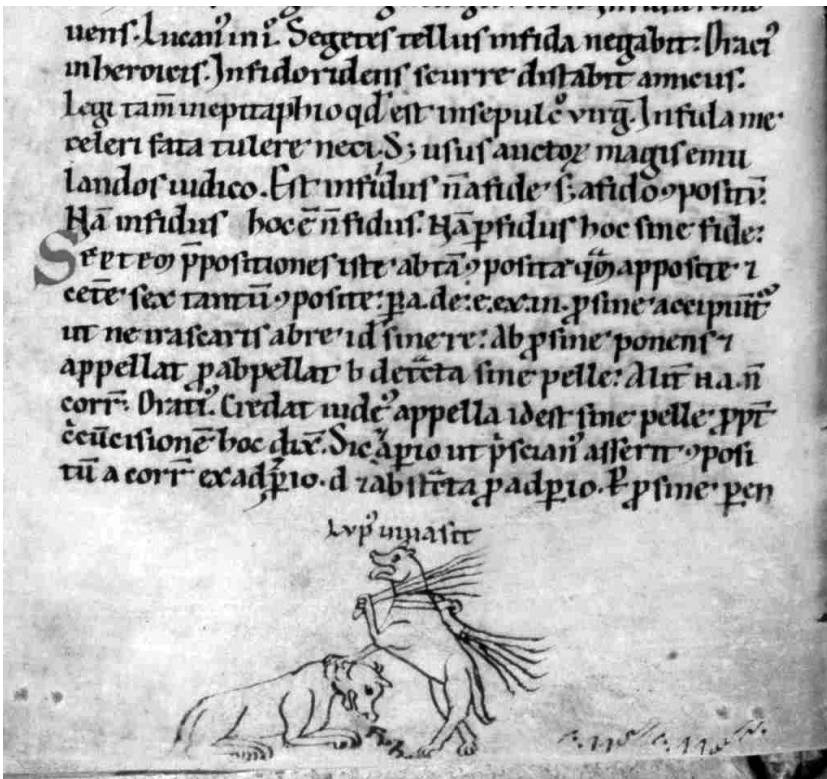 uens. Lucanꝰ in i. Segetes tellus infida negabit: Oraciꝰ
in heroicis. Infido ridens scurre distabit amicus.
Legi tam̄ in epitaphio qd̓ est in sepulcͦ virḡ. Infida me
celeri fata tulere neci. S; usus auctoꝝ magis emu
landos iudico. Est infidus n̄ a fide s; a fido ꝯpositū.
Nā infidus hoc ē n̄ fidus. Nā ꝑfidus hoc sine fide:
Septem p̄positiones iste ab tā ꝯposita qᵃm apposite ⁊
cetē sex tantū ꝯposite: ꝑ a. de: e. ex. in. ꝓ sine accipiunt᷑
ut ne irascaris ab re id sine re: Ab ꝓ sine ponens ⁊
appellat ꝓ abpellat b detᵃcta sine pelle: Alit᷑ n a n̄
corr̄. Oratiꝰ. Credat iudeꝰ appella id est sine pelle ꝓpt̄
c̄cūcisionē hoc dix̄. Sic aꝑio ut p̓scianꝰ asserit ꝯposi
tū a corr̄ ex adꝑio. d ⁊ abstᵃcta ꝓ adꝑio. ꝑ ꝓ sine ꝑ en
Lupꝰ